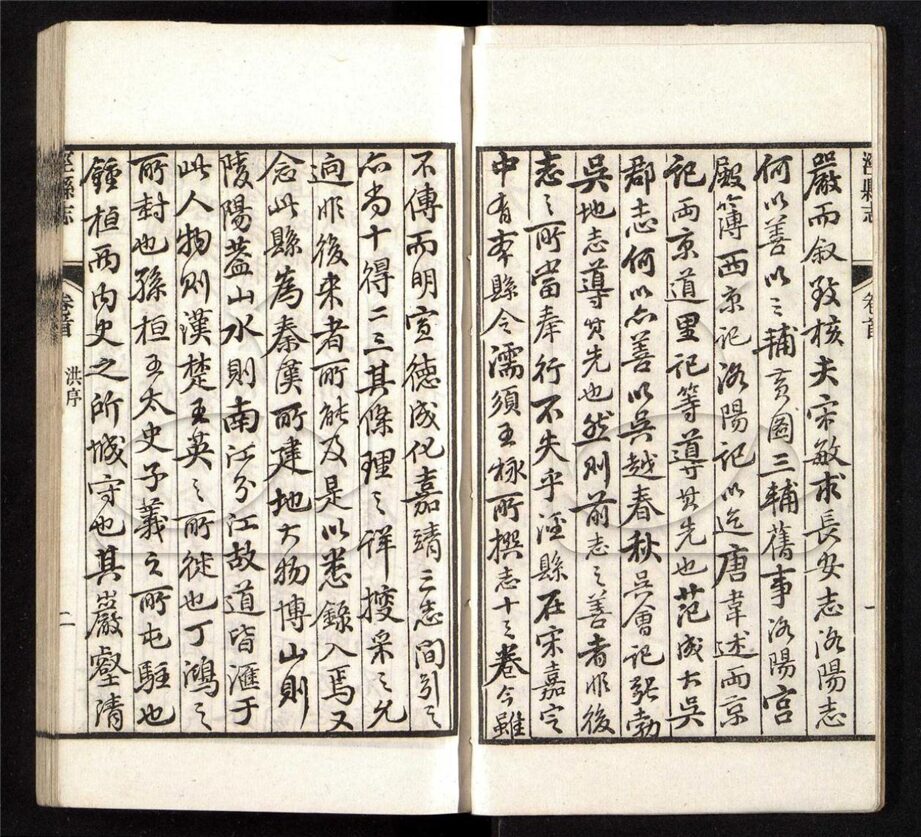 涇縣志
卷首
一
嚴而叙致核夫宋敏求長安志洛陽志
何以善以三輔黄圖三輔舊事洛陽宫
殿簿西京記洛陽記以迄唐韋述两京
記两京道里記等導其先也范成大吴
郡志何以亦善以吴越春秋吴會記
吴地志導其先也然則前志之善者非後
志之所當奉行不失乎涇縣在宋嘉定
中有本縣令濡須王栐所撰志十三卷今雖
不傳而明宣德成化嘉靖三志間引之
亦尚十得二三其條理之詳搜采之允
迥非後来者所能及是以悉錄入焉又
念此縣為秦漢所建地大物博山則
陵陽蓋山水則南江分江故道皆滙于
此人物則漢楚王英之所徙也丁鴻之
所封也孫桓王太史子義之所屯駐也
鍾桓两内史之所城守也其巖壑清
涇縣志
卷首
洪序
二